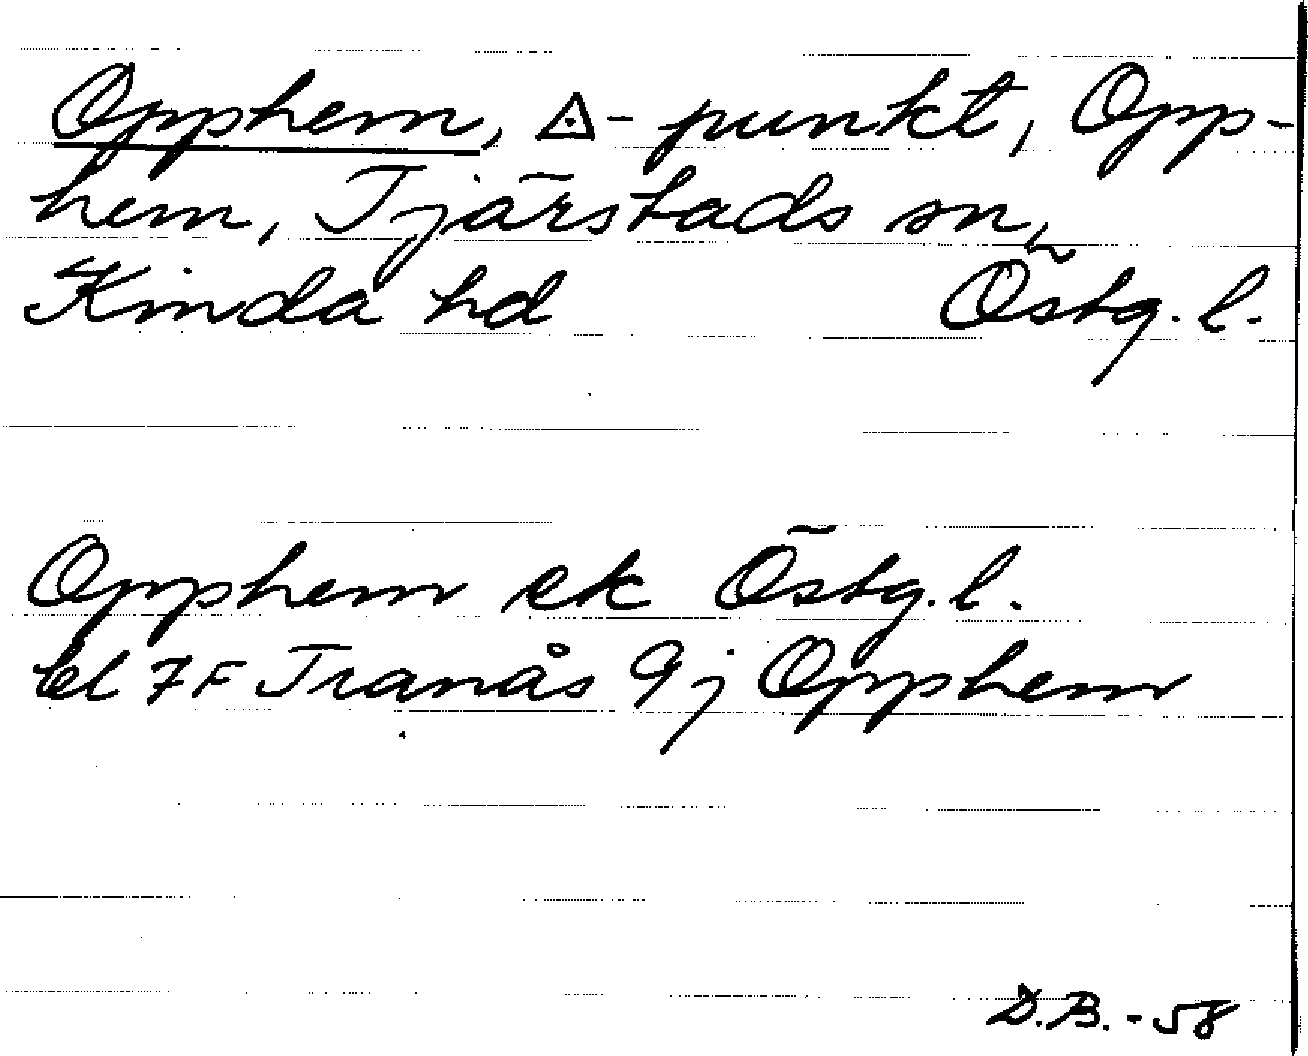 Opphem, △-punkt, Opp-
hem, Tjärstads sn,
Kinda hd Östg. l.
Opphem ek Östg. l.
bl 7F Tranås 9j Opphem
D.B.-58